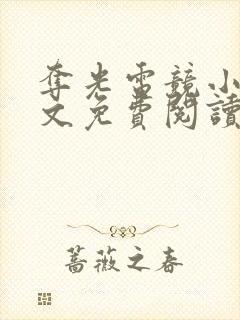 奪光雷競小
文免費閱讀
薔薇之春